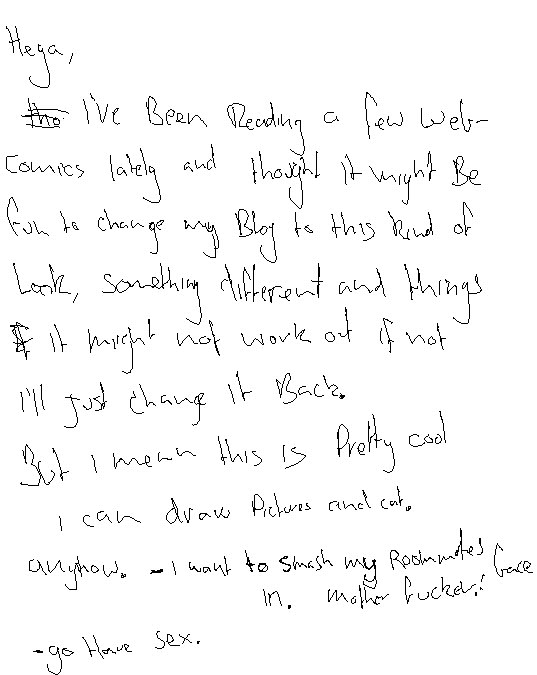 Heya,
I've Been Reading a few web-
comics lately and thought it might Be
fun to change my Blog to this kind of
Look, something different and things
it might not work out if not
I'll just change it Back.
But i mean this is Pretty cool
i can draw Pictures and cat.
anyhow. - i want to smash my Roommates face
in. mother fucker!
- go Have sex.